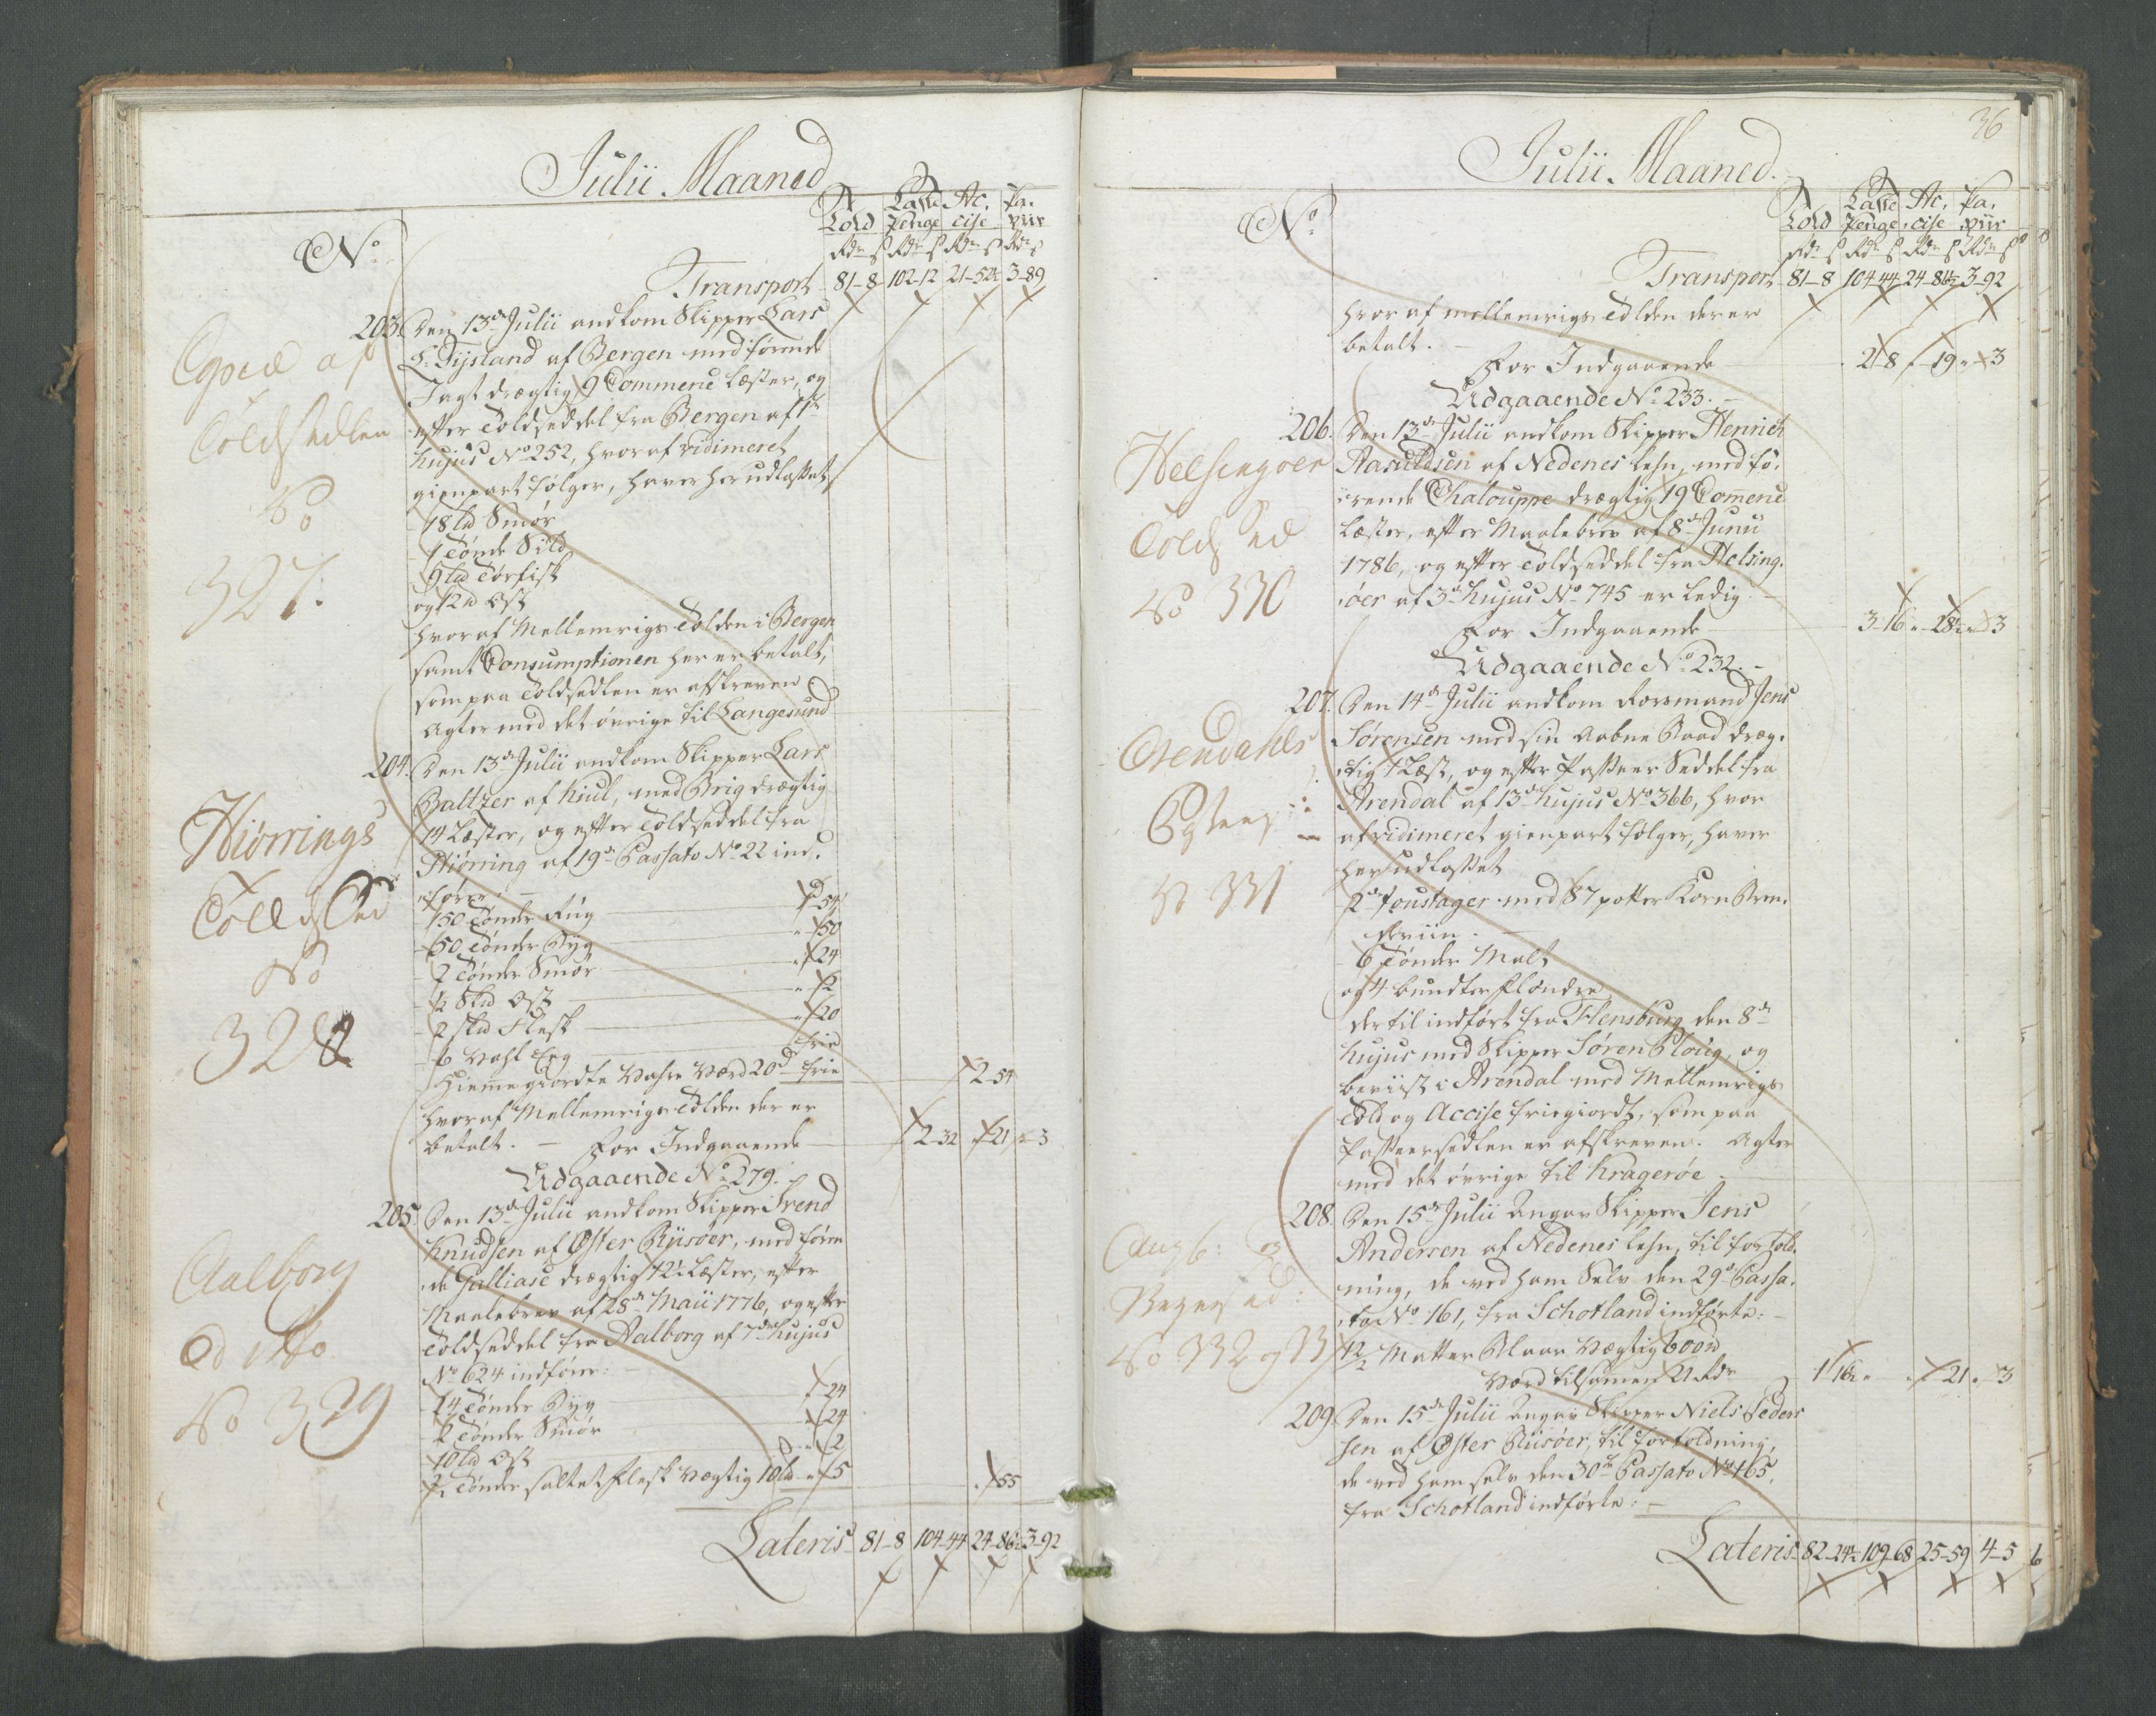 Julii Maaned
No
Told Laste Penge Ac, cise Pa, piir
Rdr ß Rdr ß Rdr ß Rdr ß
Transport 81-8 102-12 21-52½ 3-89
Copie af
Toldsedlen
No
327.
203. Den 13de Julii andkom Skipper Lars
L: Tijsland af Bergen med førende
Jagt drægtig 9 Commerce Læster, og
efter Toldseddel fra Bergen af 1te
hujus No 252, hvoraf vidimeret
gienpart følger, haver her udlosset
18 Lb Smør
1 Tønde Sild
9 Lb Tørfisk
og 12 lb Ost
hvoraf Mellemrigs Tolden i Bergen
samt Consumptionen her er betalt,
som paa Toldsedlen er afskreven
Agter med det øvrige til Langesund
Hiørrings
Told Sed
No
328
204. Den 13de Julii andkom Skipper Lars
Baltzer af Kiul, med Brig drægtig
14 Læster, og efter Toldseddel fra
Hiørring af 19de Passato No 22 ind,
fører
150 Tønder Rug 1 54
50 Tønder Byg " 50
2 Tønder Smør " 24
½ Skd Ost " 2
2 Skd Flesk " 20
6 Vahl Eeg frie
Hiemmegiordte Vahre Værd 20d frie 2-54
hvoraf Mellemrigs Tolden der er
betalt. - For Indgaaende 2-32 " 21 " 3
Udgaaende No 279.
Aalborg
Ditto
No 329
205. Den 13de Julii andkom Skipper Svend
Knudsen af Øster Riisøer, med føren
,de Galliase drægtig 12½ Læster, efter
Maalebrev af 28de Maii 1776, og efter
Toldseddel fra Aalborg af 7de hujus
No 624 indfører:
24 Tønder Byg " 24
2 Tønder Smør " 24
10 Lb Ost " 2
½ Tønder saltet Flesk Vægtig 10 Lb " 5 " 55
Lateris 81-8 104-44 24-86½ 3-92
36
Julii Maaned.
No
Told Laste Penge Ac, cise Pa, piir
Rdr ß Rdr ß Rdr ß Rdr ß
Transport 81-8 104-44 24-86½ 3-92
hvoraf mellemrigs Tolden der er
betalt.
For Indgaaende 2-8 " 19 " 3
Udgaaende No 233.
Helsingoer
Told Sed
No 330
206. Den 13de Julii andkom Skipper Henrich
Aasuldsen af Nedenes Lehn, med fø,
,rende Chalouppe drægtig 19 Commerce
Læster, efter Maalebrev af 8de Junii
1786, og efter Toldseddel fra Helsing,
,öer af 3de hujus No 745 er ledig
For Indgaaende 3-16 " 28½ " 3
Udgaaende No 232.
Arendahls
No 331
207. Den 14de Julii andkom Forsmand Jens
Sørensen med sin Aabne Baad dræg,
,tig 1 Læst, og efter Passeer Seddel fra
Arendal af 13de hujus No 366, hvor
af vidimeret gienpart følger, haver
her udlosset
2de foustager med 87 potter Korn Bren,
deviin.
6 Tønder Malt
og 4 bundter Flondre
der til indført fra Flensburg den 8de
hujus med Skipper Søren Ploug, og
beviist i Arendal med Mellemrigs
Told og Accise friegiordt, som paa
Passeersedlen er afskreven. Agter
med det øvrige til Kragerøe
No 332 og 33
208. Den 15de Julii Angav Skipper Jens
Andersen af Nedenes Lehn, til fortold,
ning, de ved ham Selv den 29de Passa,
,to No 161, fra Schotland indførte:
12/2 Matter Blaar Vægtig 600 lb
Værd tilsamen 21 Rdr 1 16½ " " 21 " 3
209. Den 15de Julii Angav Skipper Niels Peder
sen af Øster Riisøer, til fortoldning,
de ved ham selv den 30te Passato No 165,
fra Schotland indførte:
Lateris 82-24½ 109-68 25-59 4-5